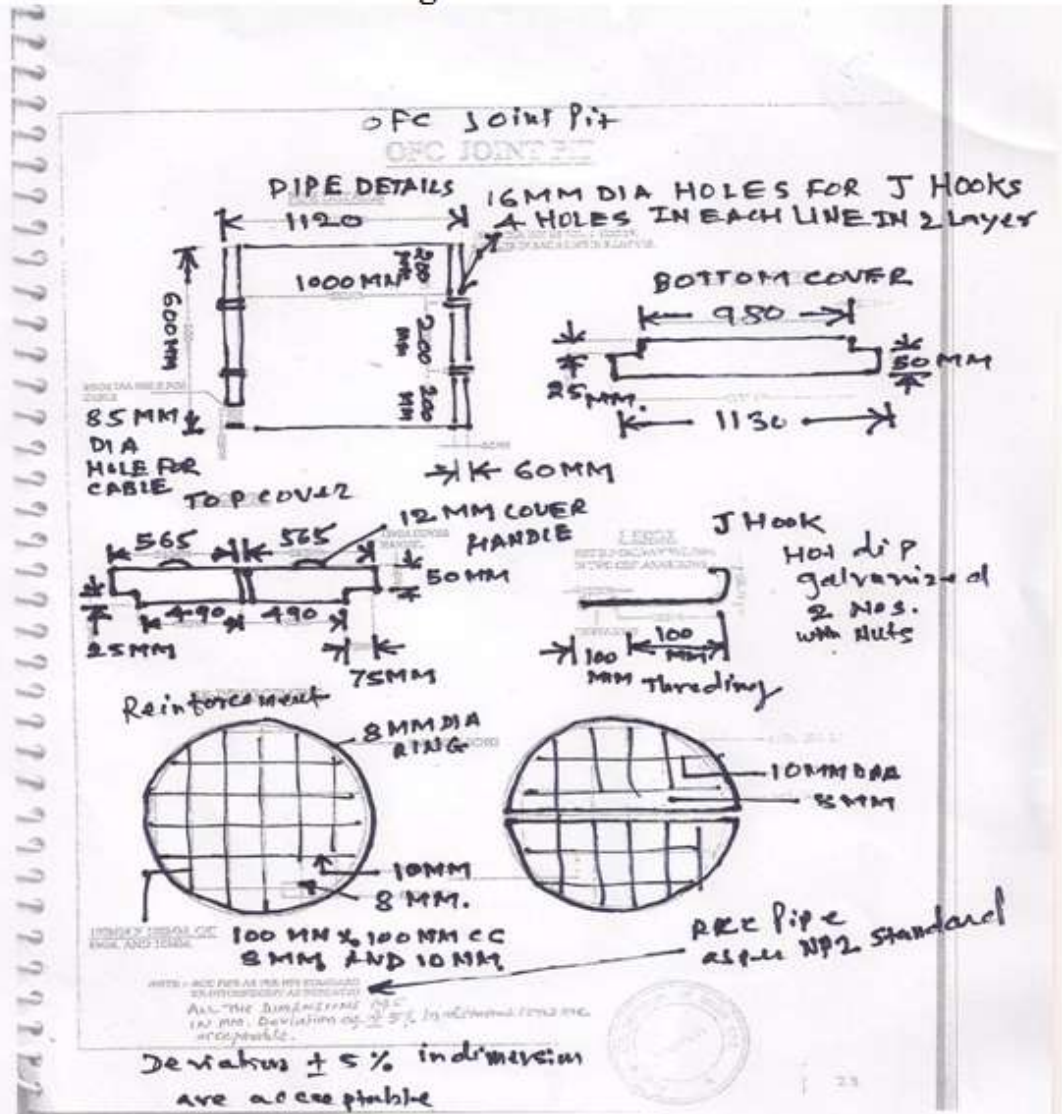 OFC Joint Pit
OFC JOINT PIT
PIPE DETAILS
1120
16MM DIA HOLES FOR J HOOKS
4 HOLES IN EACH LINE IN 2 Layer
1000MM
600MM
200 MM
200 MM
200 MM
85MM
DIA
HOLE FOR
CABLE
60MM
BOTTOM COVER
980
50MM
25MM.
1130
TOP COVER
565
565
12MM COVER
HANDLE
50MM
490
490
25MM
75MM
J HOOK
Hot dip
galvanized
2 Nos.
with Nuts
100
MM
100
MM
Threding
Reinforcement
8MMDIA
RING
10MM
8MM.
100 MM X 100MM CC
8MM AND 10MM
10MM DIA
8MM
RCC Pipe
as per NP2 Standard
ALL THE DIMENSIONS ARE
IN MM. Deviation of ± 5% in dimensions are
acceptable.
Deviations ± 5% in dimersion
are acceptable
23